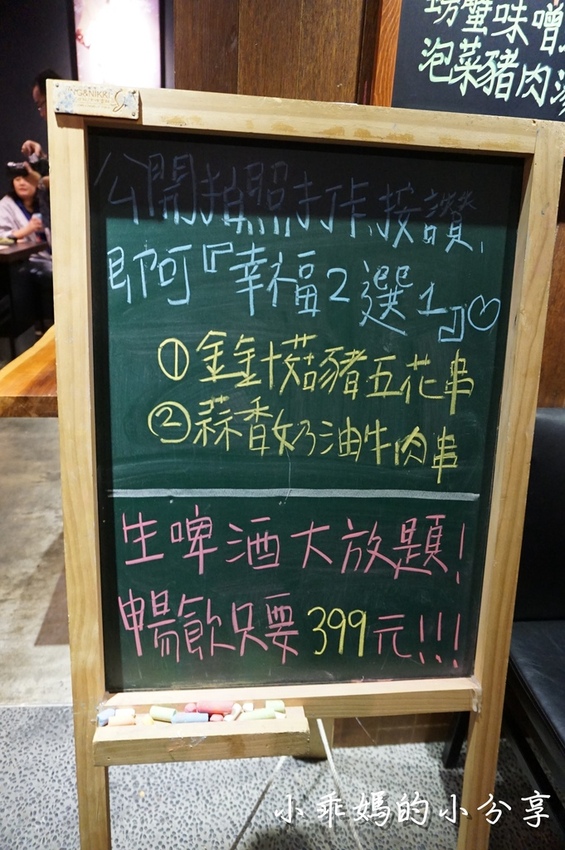 螃蟹味噌
泡菜豬肉湯
公開拍照打卡,按讚,
即可『幸福2選1』♡
①金針菇豬五花串
②蒜香奶油牛肉串
生啤酒大放題!
暢飲只要399元!!!
小乖媽的小分享